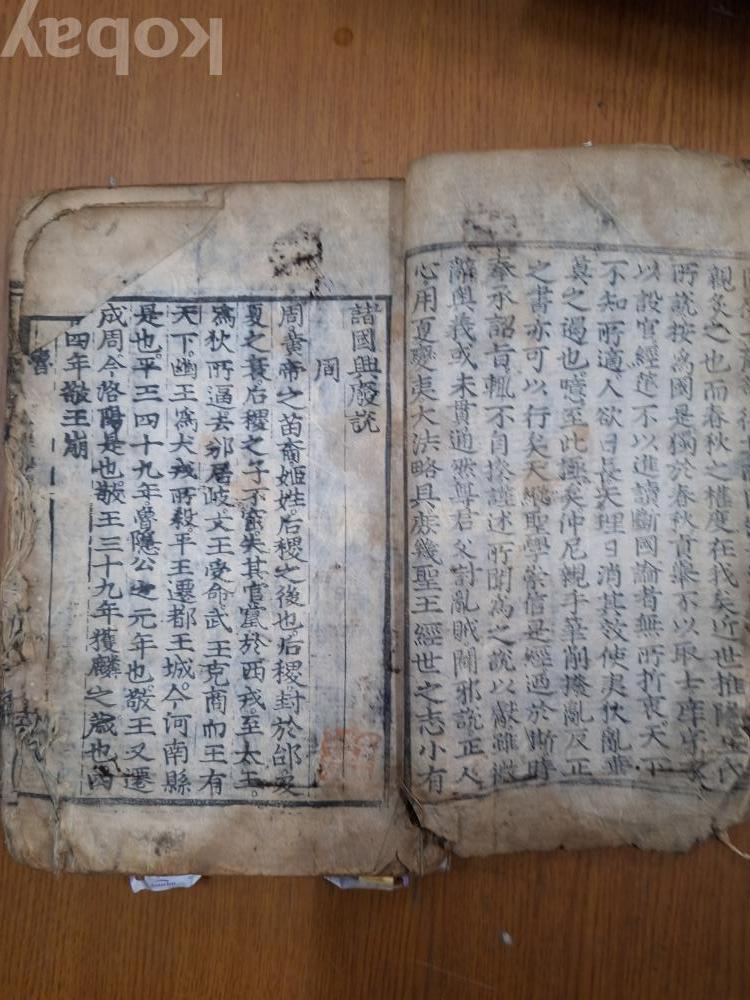 親炙之也而春秋之權度在我矣近世推隆王氏
說按為國是獨於春秋貢舉不以取士庠序不
以設官經筵不以進讀斷國論者無所折衷天下
不知所適人欲日長天理日消其效使夷狄亂華
莫之遏也噫至此極矣仲尼親手筆削撥亂反正
之書亦可以行矣天縱聖學崇信是經迺於斯時
奉承詔旨輒不自揆謹述所聞為之說以獻雖微
辭奧義或未貫通然尊君父討亂賊闢邪說正人
心用夏變夷大法略具庶幾聖王經世之志小有
諸國興廢說
周
周黃帝之苗裔姬姓后稷之後也后稷封於邰及
夏之衰后稷之子不窋失其官竄於西戎至太王
爲狄所逼去邠居岐文王受命武王克商而王有
天下幽王爲犬戎所殺平王遷都王城今河南縣
是也平三四十九年魯隱公之元年也敬王又遷
成周今洛陽是也敬王三十九年獲麟之歲也四
十四年敬王崩
魯
kobay